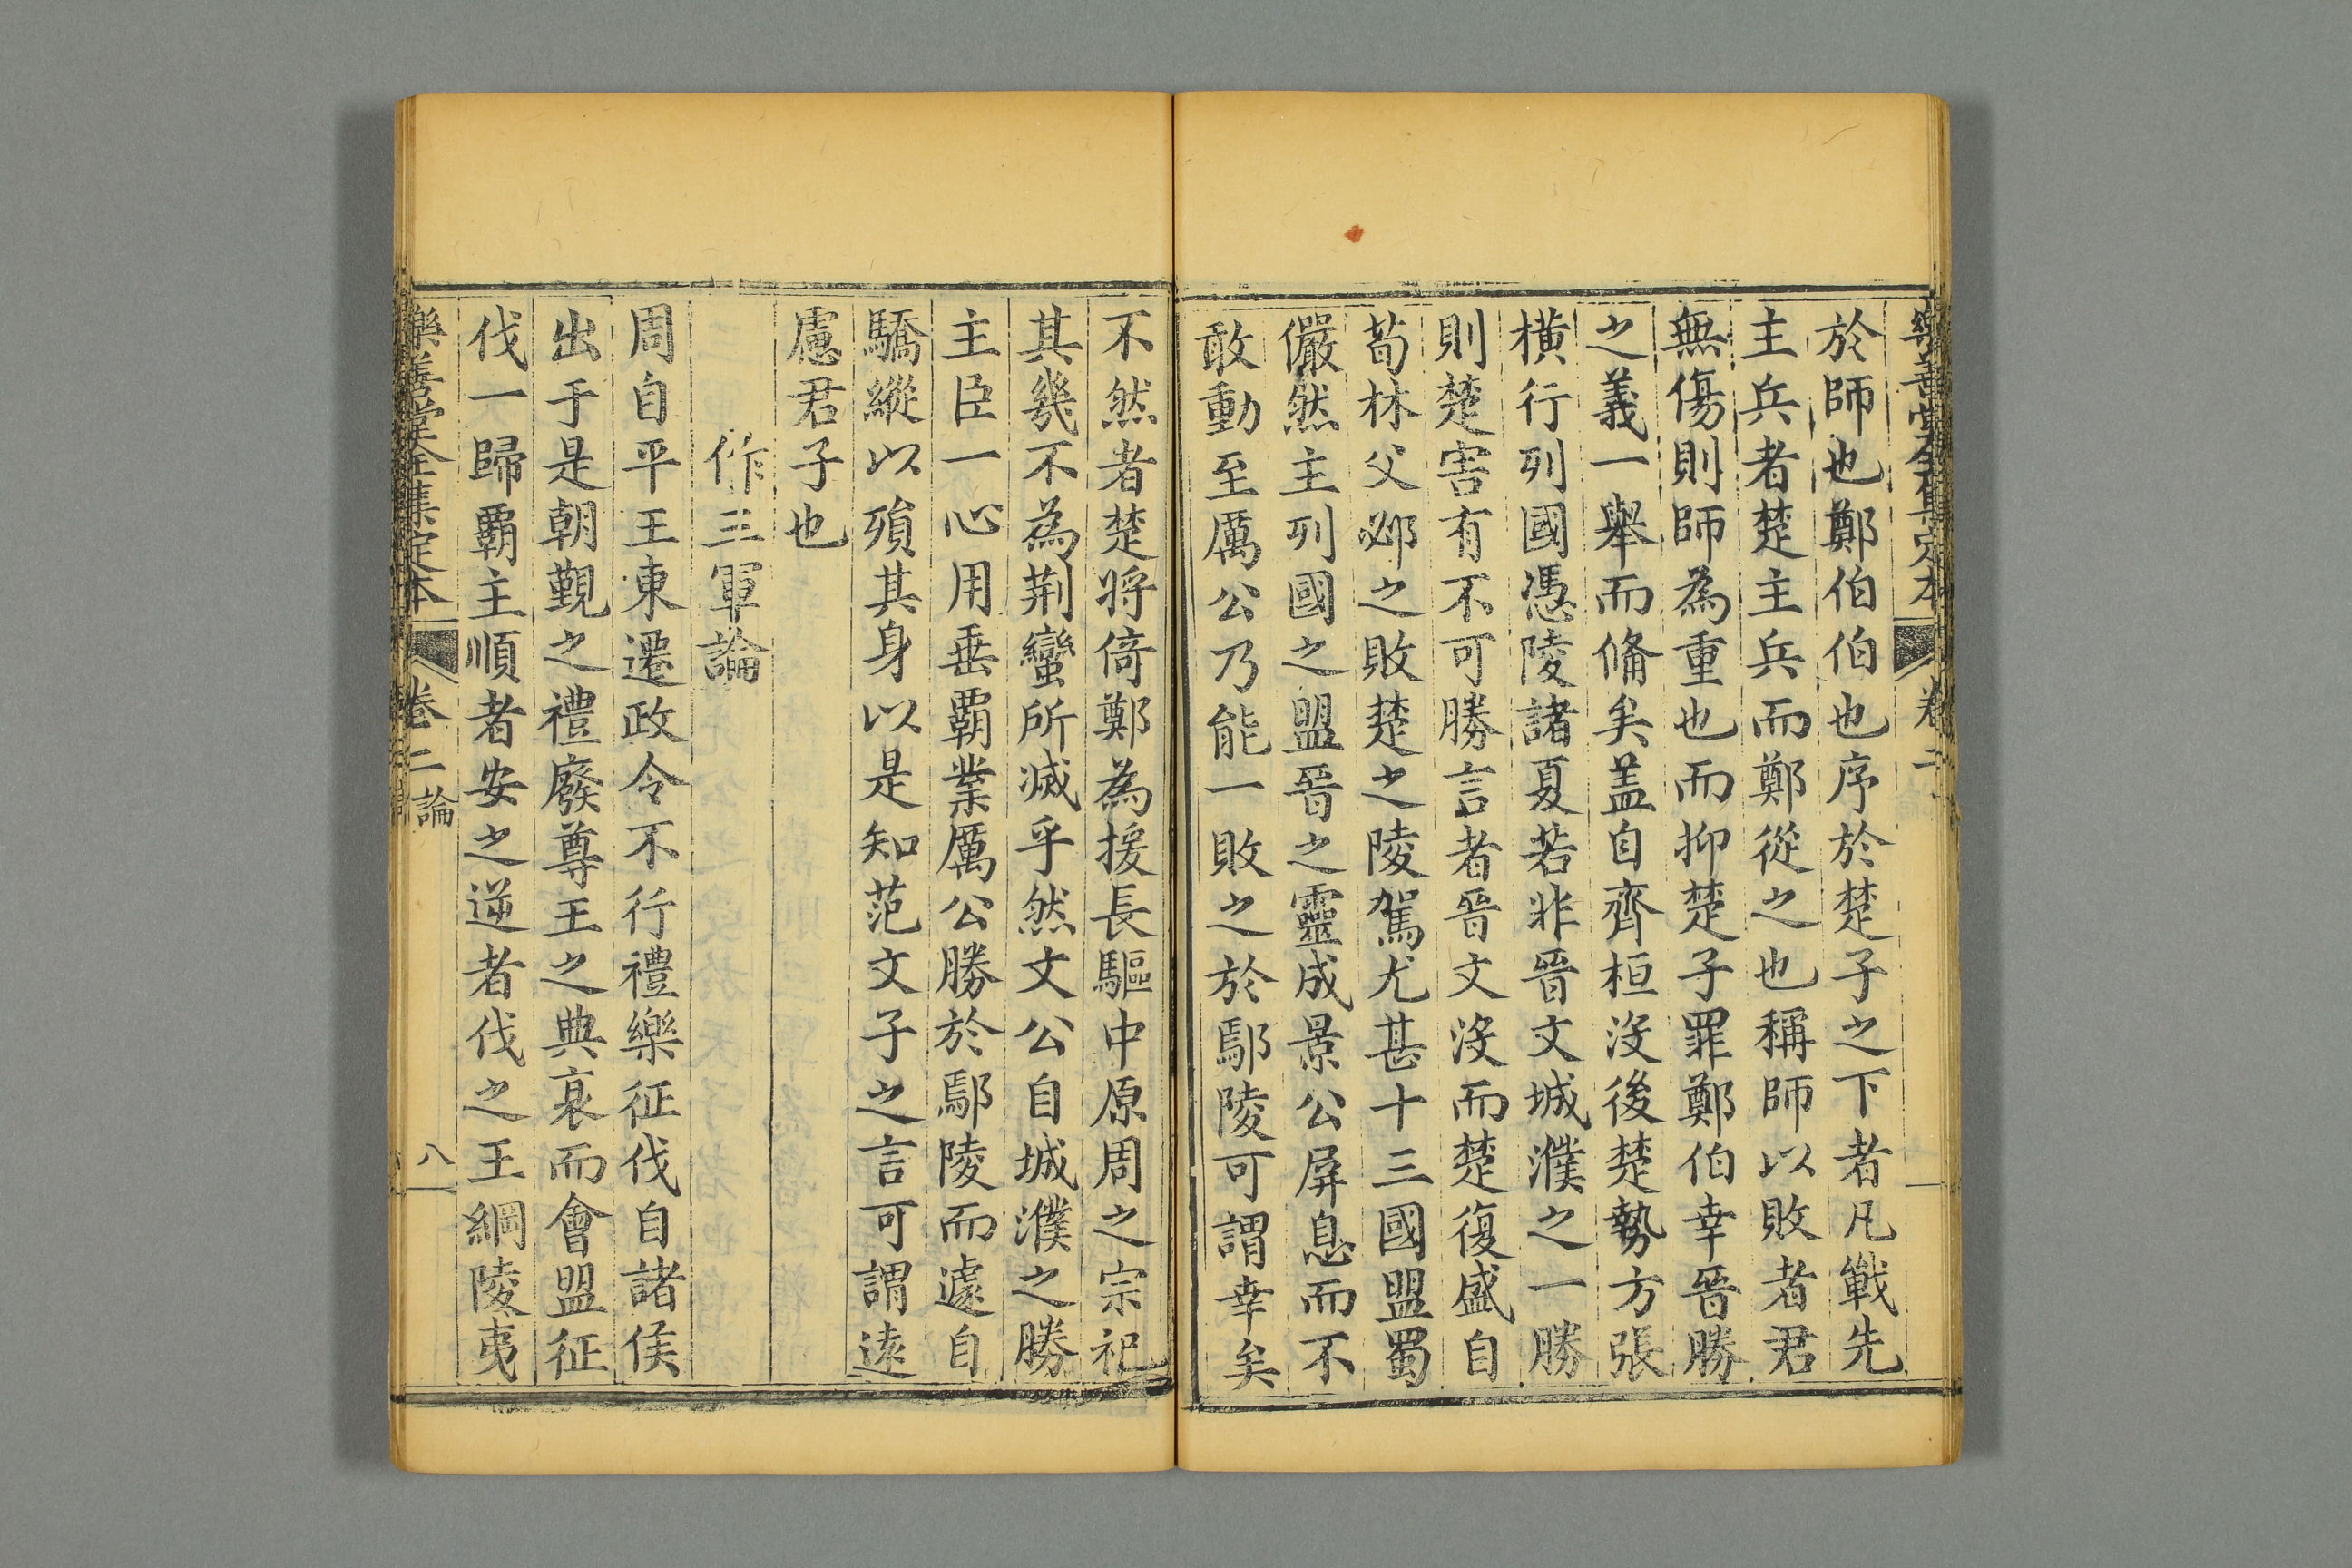 樂善堂全集定本 卷二
於師也鄭伯伯也序於楚子之下者凡戰先
主兵者楚主兵而鄭從之也稱師以敗者君
無傷則師為重也而抑楚子罪鄭伯幸晉勝
之義一舉而備矣盖自齊桓沒後楚勢方張
橫行列國憑陵諸夏若非晉文城濮之一勝
則楚害有不可勝言者晉文沒而楚復盛自
荀林父邲之敗楚之陵駕尤甚十三國盟蜀
儼然主列國之盟晉之靈成景公屏息而不
敢動至厲公乃能一敗之於鄢陵可謂幸矣
不然者楚將倚鄭為援長驅中原周之宗祀
其幾不為荆蠻所滅乎然文公自城濮之勝
主臣一心用垂覇業厲公勝於鄢陵而遽自
驕縱以殞其身以是知范文子之言可謂遠
慮君子也
作三軍論
周自平王東遷政令不行禮樂征伐自諸侯
出于是朝覲之禮廢尊王之典衰而會盟征
伐一歸覇主順者安之逆者伐之王綱陵夷
樂善堂全集定本 卷二 論 八